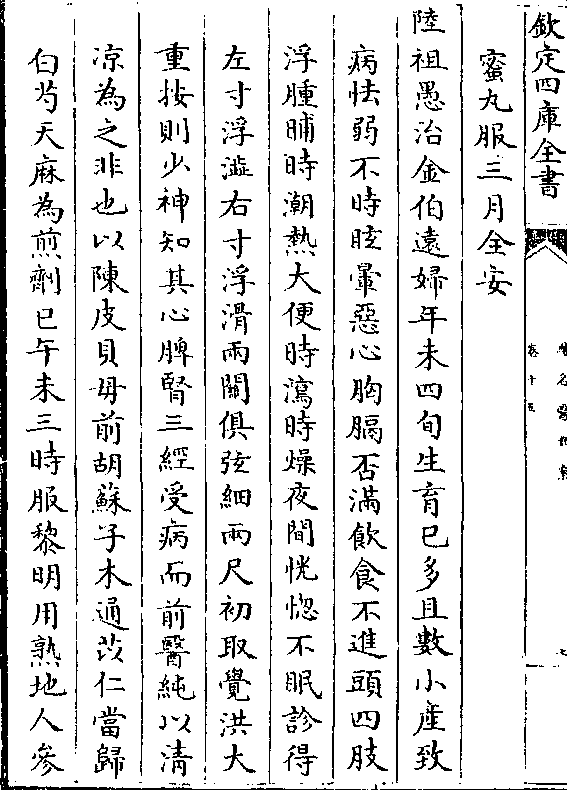 欽定四庫全書
卷十五
蜜丸服三月全安
陸祖愚治金伯遠婦年未四旬生育已多且數小產致
病怯弱不時眩暈惡心胸膈否滿飲食不進頭四肢
浮腫晡時潮熱大便時瀉時燥夜間恍惚不眠診得
左寸浮澁右寸浮滑兩關俱弦細兩尺初取覺洪大
重按則少神知其心脾腎三經受病而前醫純以清
凉為之非也以陳皮貝母前胡蘇子木通苡仁當歸
白芍天麻為煎劑已午未三時服黎明用熟地人參